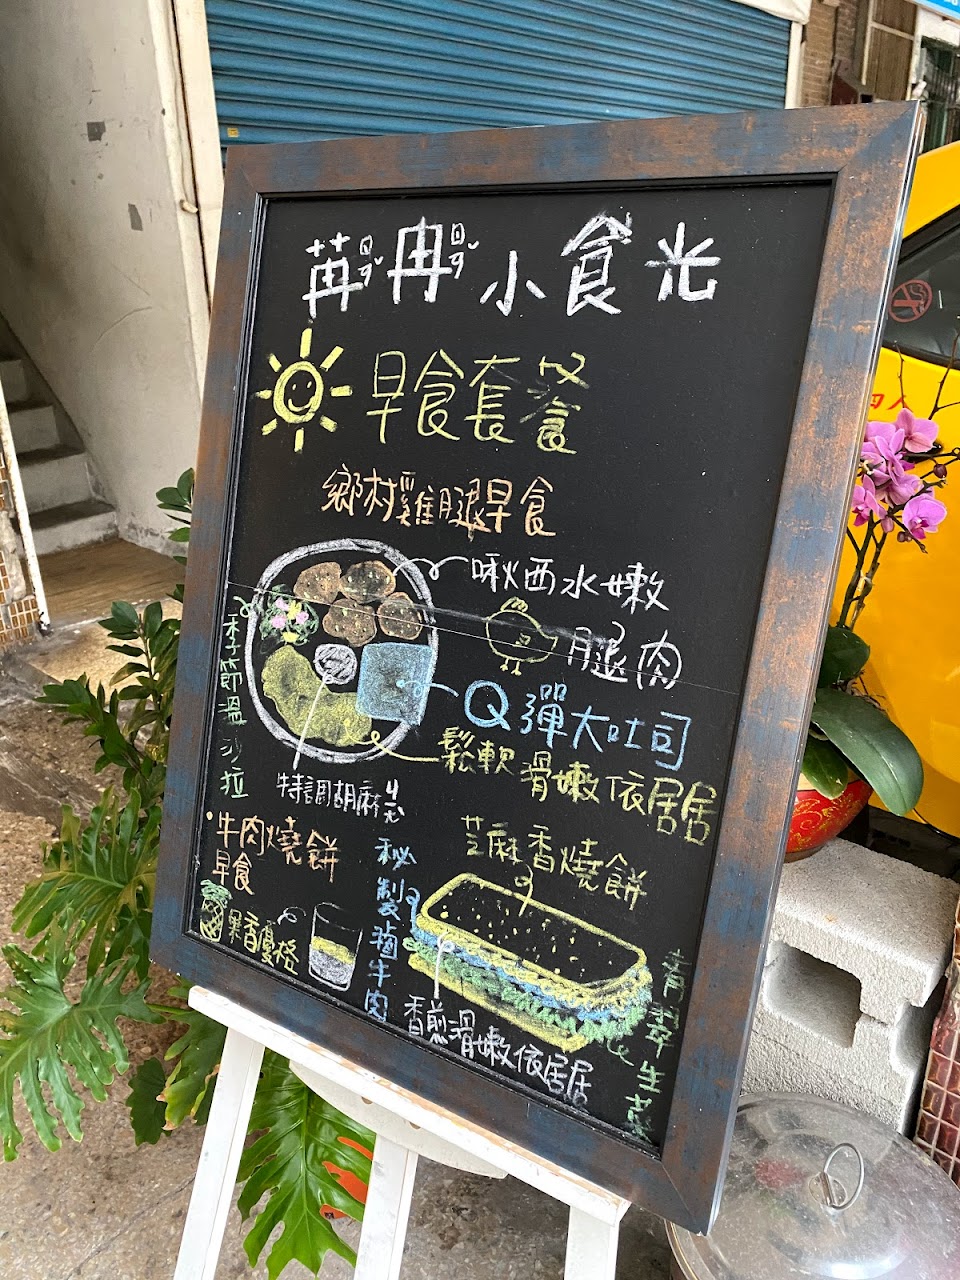 苒ㄖㄢˇ冉ㄖㄢˇ小食光
早食套餐
鄉村雞腿早食
啾西水嫩
腿肉
Q彈大吐司
鬆軟滑嫩依居居
季節溫沙拉
特調胡麻
牛肉燒餅
早食
果香優格
秘製滷牛肉
芝麻香燒餅
香煎滑嫩依居居
青翠生菜